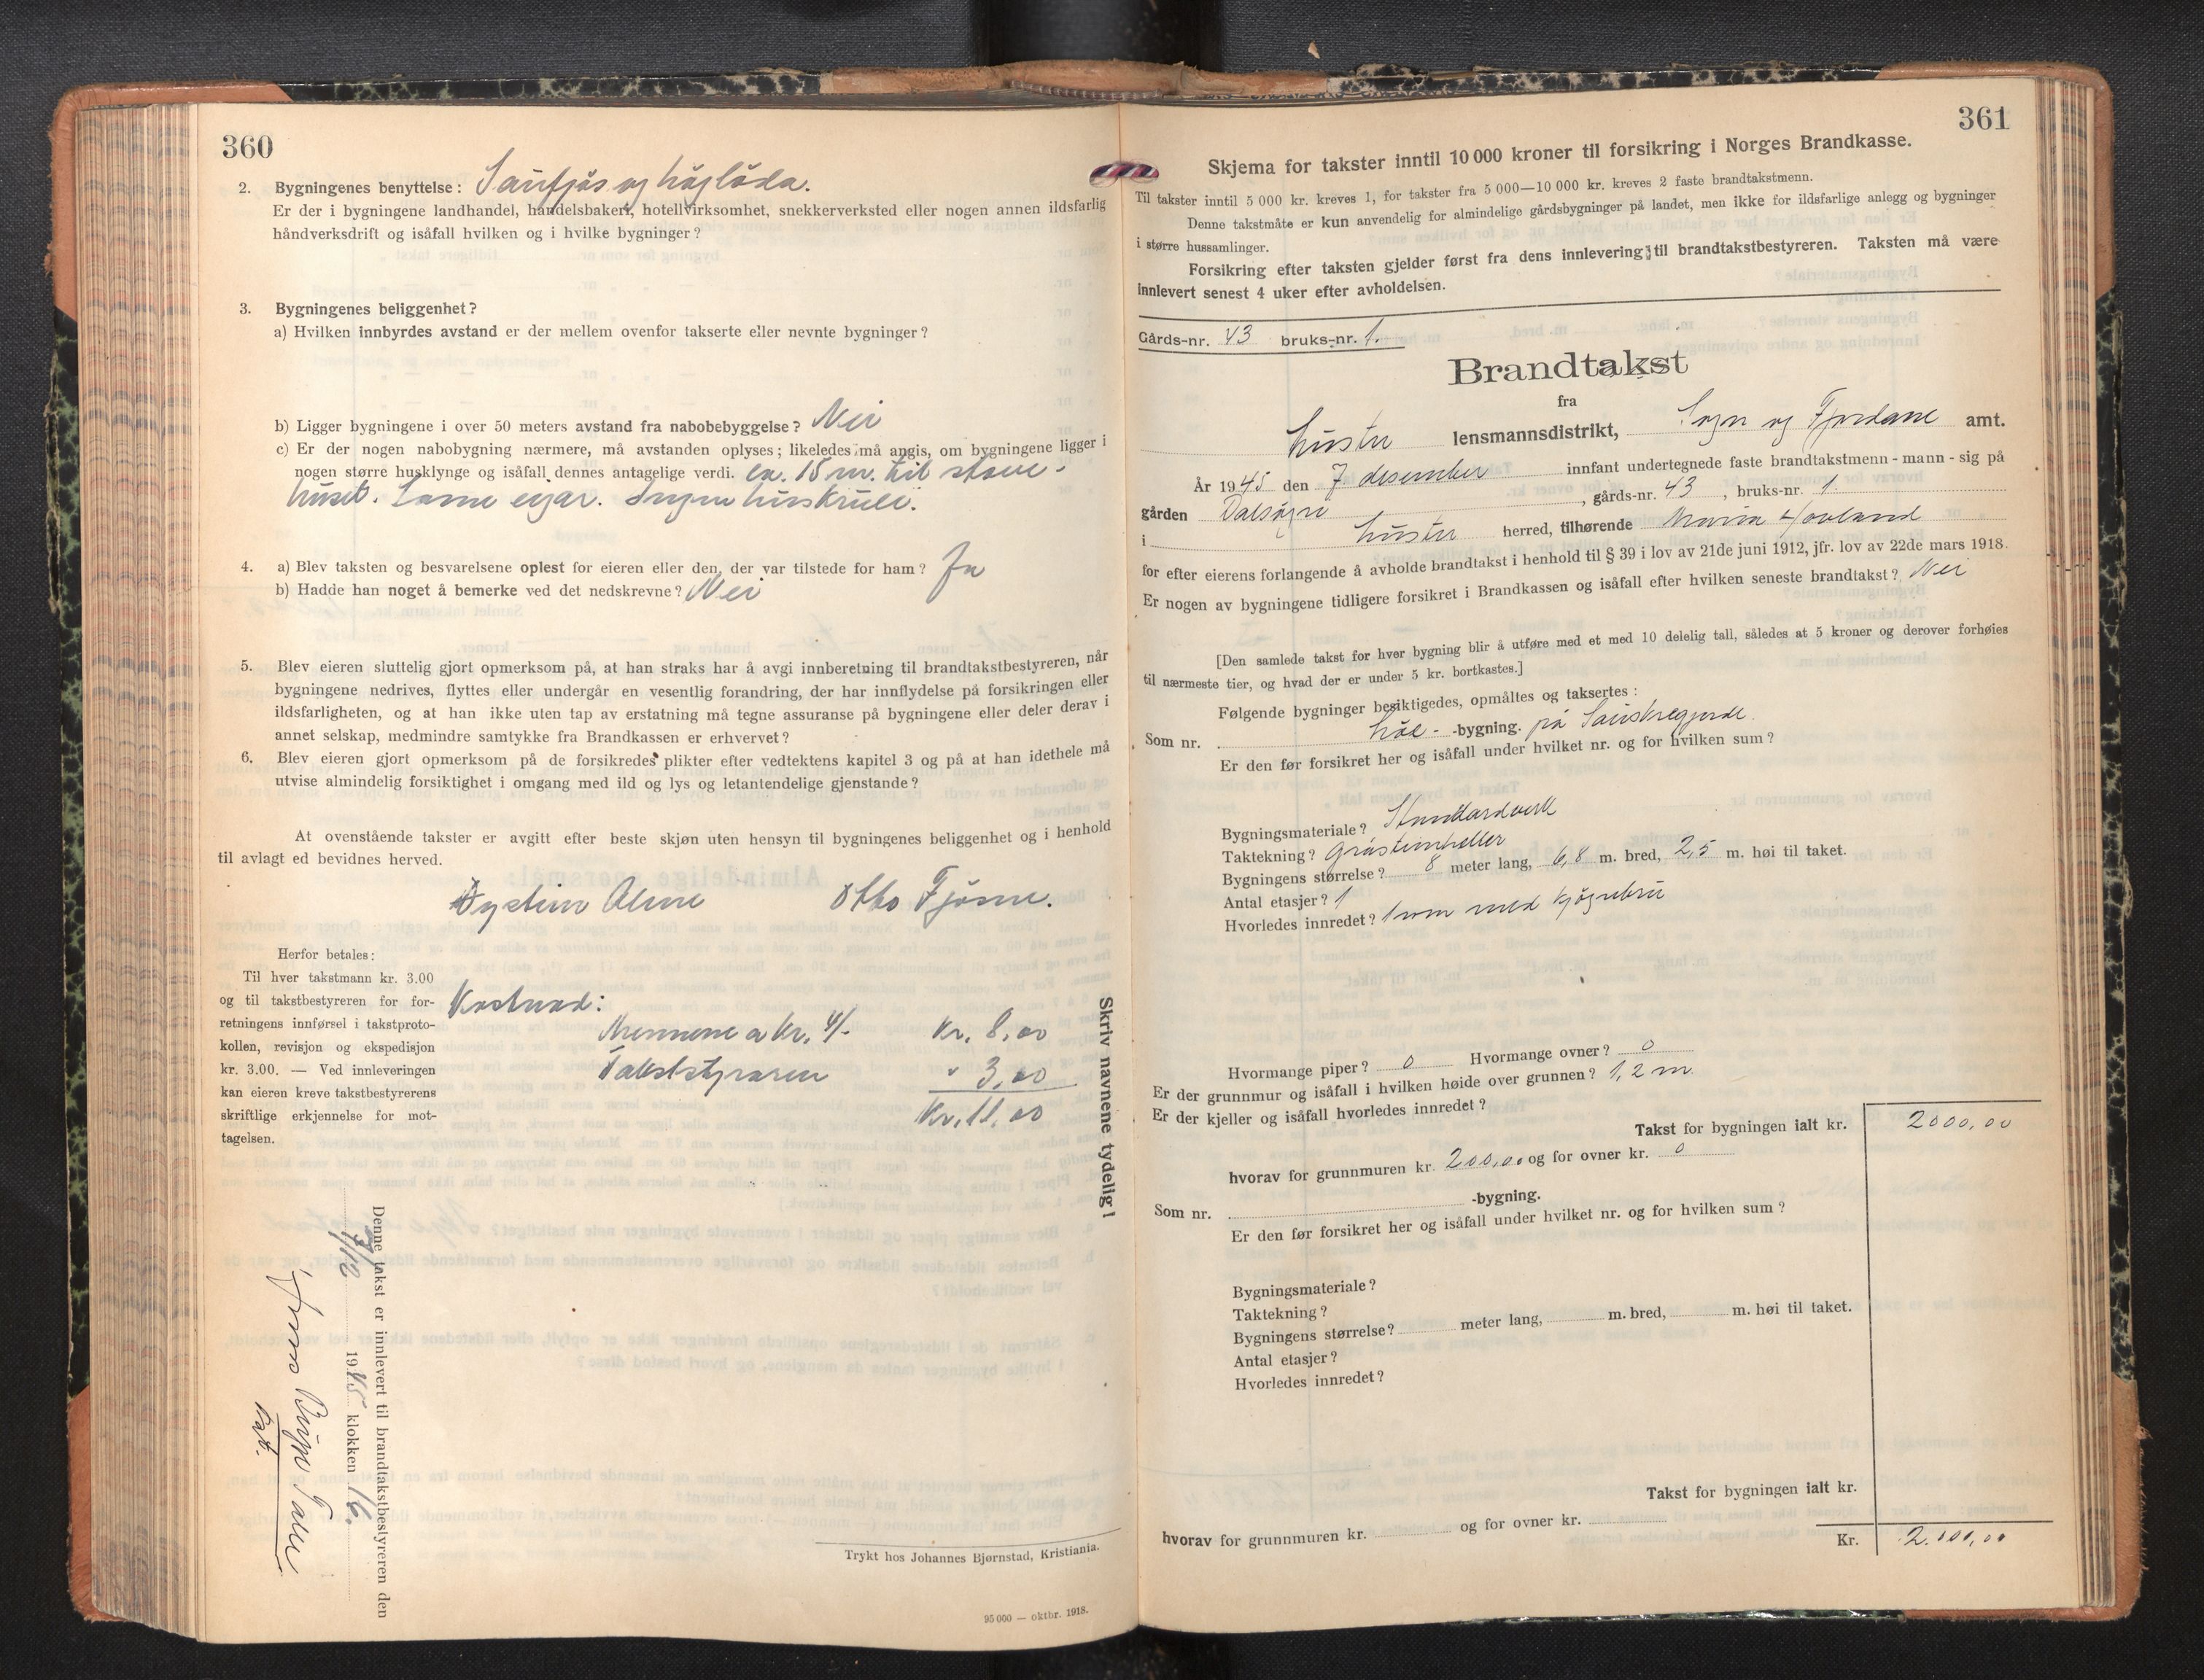 360
2. Bygningenes benyttelse: Saufjøs og høyløda.
Er der i bygningene landhandel, handelsbakeri, hotellvirksomhet, snekkerverksted eller nogen annen ildsfarlig
håndverksdrift og isåfall hvilken og i hvilke bygninger?
3. Bygningenes beliggenhet?
a) Hvilken innbyrdes avstand er der mellem ovenfor takserte eller nevnte bygninger?
b) Ligger bygningene i over 50 meters avstand fra nabobebyggelse? Nei
c) Er der nogen nabobygning nærmere, må avstanden oplyses; likeledes må angis, om bygningene ligger i
nogen større husklynge og isåfall dennes antagelige verdi. ca. 15 m. til stove-
huset. Same eigar. Ingen huskrull.
4. a) Blev taksten og besvarelsene oplest for eieren eller den, der var tilstede for ham? Ja
b) Hadde han noget å bemerke ved det nedskrevne? Nei
5. Blev eieren sluttelig gjort opmerksom på, at han straks har å avgi innberetning til brandtakstbestyreren, når
bygningene nedrives, flyttes eller undergår en vesentlig forandring, der har innflydelse på forsikringen eller
ildsfarligheten, og at han ikke uten tap av erstatning må tegne assuranse på bygningene eller deler derav i
annet selskap, medmindre samtykke fra Brandkassen er erhvervet?
6. Blev eieren gjort opmerksom på de forsikredes plikter efter vedtektens kapitel 3 og på at han idethele må
utvise almindelig forsiktighet i omgang med ild og lys og letantendelige gjenstande?
At ovenstående takster er avgitt efter beste skjøn uten hensyn til bygningenes beliggenhet og i henhold
til avlagt ed bevidnes herved.
Øystein Alme Otto Fjøsne.
Herfor betales:
Til hver takstmann kr. 3.00
og til takstbestyreren for for-
retningens innførsel i takstproto-
kollen, revisjon og ekspedisjon
kr. 3.00. — Ved innleveringen
kan eieren kreve takstbestyrerens
skriftlige erkjennelse for mot-
tagelsen.
Kostnad:
Mennene a kr. 4/- Kr. 8,00
Takststyraren " 3,00
Kr. 11,00
Skriv navnene tydelig!
Denne takst er innlevert til brandtakstbestyreren den
/12 1945 klokken 16.
Trykt hos Johannes Bjørnstad, Kristiania.
95 000 — oktbr. 1918.
361
Skjema for takster inntil 10 000 kroner til forsikring i Norges Brandkasse.
Til takster inntil 5 000 kr. kreves 1, for takster fra 5 000—10 000 kr. kreves 2 faste brandtakstmenn.
Denne takstmåte er kun anvendelig for almindelige gårdsbygninger på landet, men ikke for ildsfarlige anlegg og bygninger
i større hussamlinger.
Forsikring efter taksten gjelder først fra dens innlevering til brandtakstbestyreren. Taksten må være
innlevert senest 4 uker efter avholdelsen.
Gårds-nr. 43 bruks-nr. 1.
Brandtakst
fra
Luster lensmannsdistrikt, Sogn og Fjordane amt.
År 1945 den 7 desember innfant undertegnede faste brandtakstmenn - mann - sig på
gården Dalsøyri, gårds-nr. 43, bruks-nr. 1.
i Luster herred, tilhørende Maria Hovland
for efter eierens forlangende å avholde brandtakst i henhold til § 39 i lov av 21de juni 1912, jfr. lov av 22de mars 1918.
Er nogen av bygningene tidligere forsikret i Brandkassen og isåfall efter hvilken seneste brandtakst? Nei
[Den samlede takst for hver bygning blir å utføre med et med 10 delelig tall, således at 5 kroner og derover forhøies
til nærmeste tier, og hvad der er under 5 kr. bortkastes.]
Følgende bygninger besiktigedes, opmåltes og taksertes:
Som nr. Løe- -bygning. på
Er den før forsikret her og isåfall under hvilket nr. og for hvilken sum?
Bygningsmateriale? Standardverk
Taktekning? Gråsteinheller
Bygningens størrelse? 8 meter lang, 6,8 m. bred, 2,5 m. høi til taket.
Antal etasjer? 1
Hvorledes innredet? 1 rom med køyrebru
Hvormange piper? 0 Hvormange ovner? 0
Er der grunnmur og isåfall i hvilken høide over grunnen? 1,2 m
Er der kjeller og isåfall hvorledes innredet?
Takst for bygningen ialt kr. 2000,00
hvorav for grunnmuren kr. 200,00 og for ovner kr. 0
Som nr. -bygning.
Er den før forsikret her og isåfall under hvilket nr. og for hvilken sum?
Bygningsmateriale?
Taktekning?
Bygningens størrelse? meter lang, m. bred, m. høi til taket.
Antal etasjer?
Hvorledes innredet?
Takst for bygningen ialt kr.
hvorav for grunnmuren kr. og for ovner kr.
Kr. 2.000,00